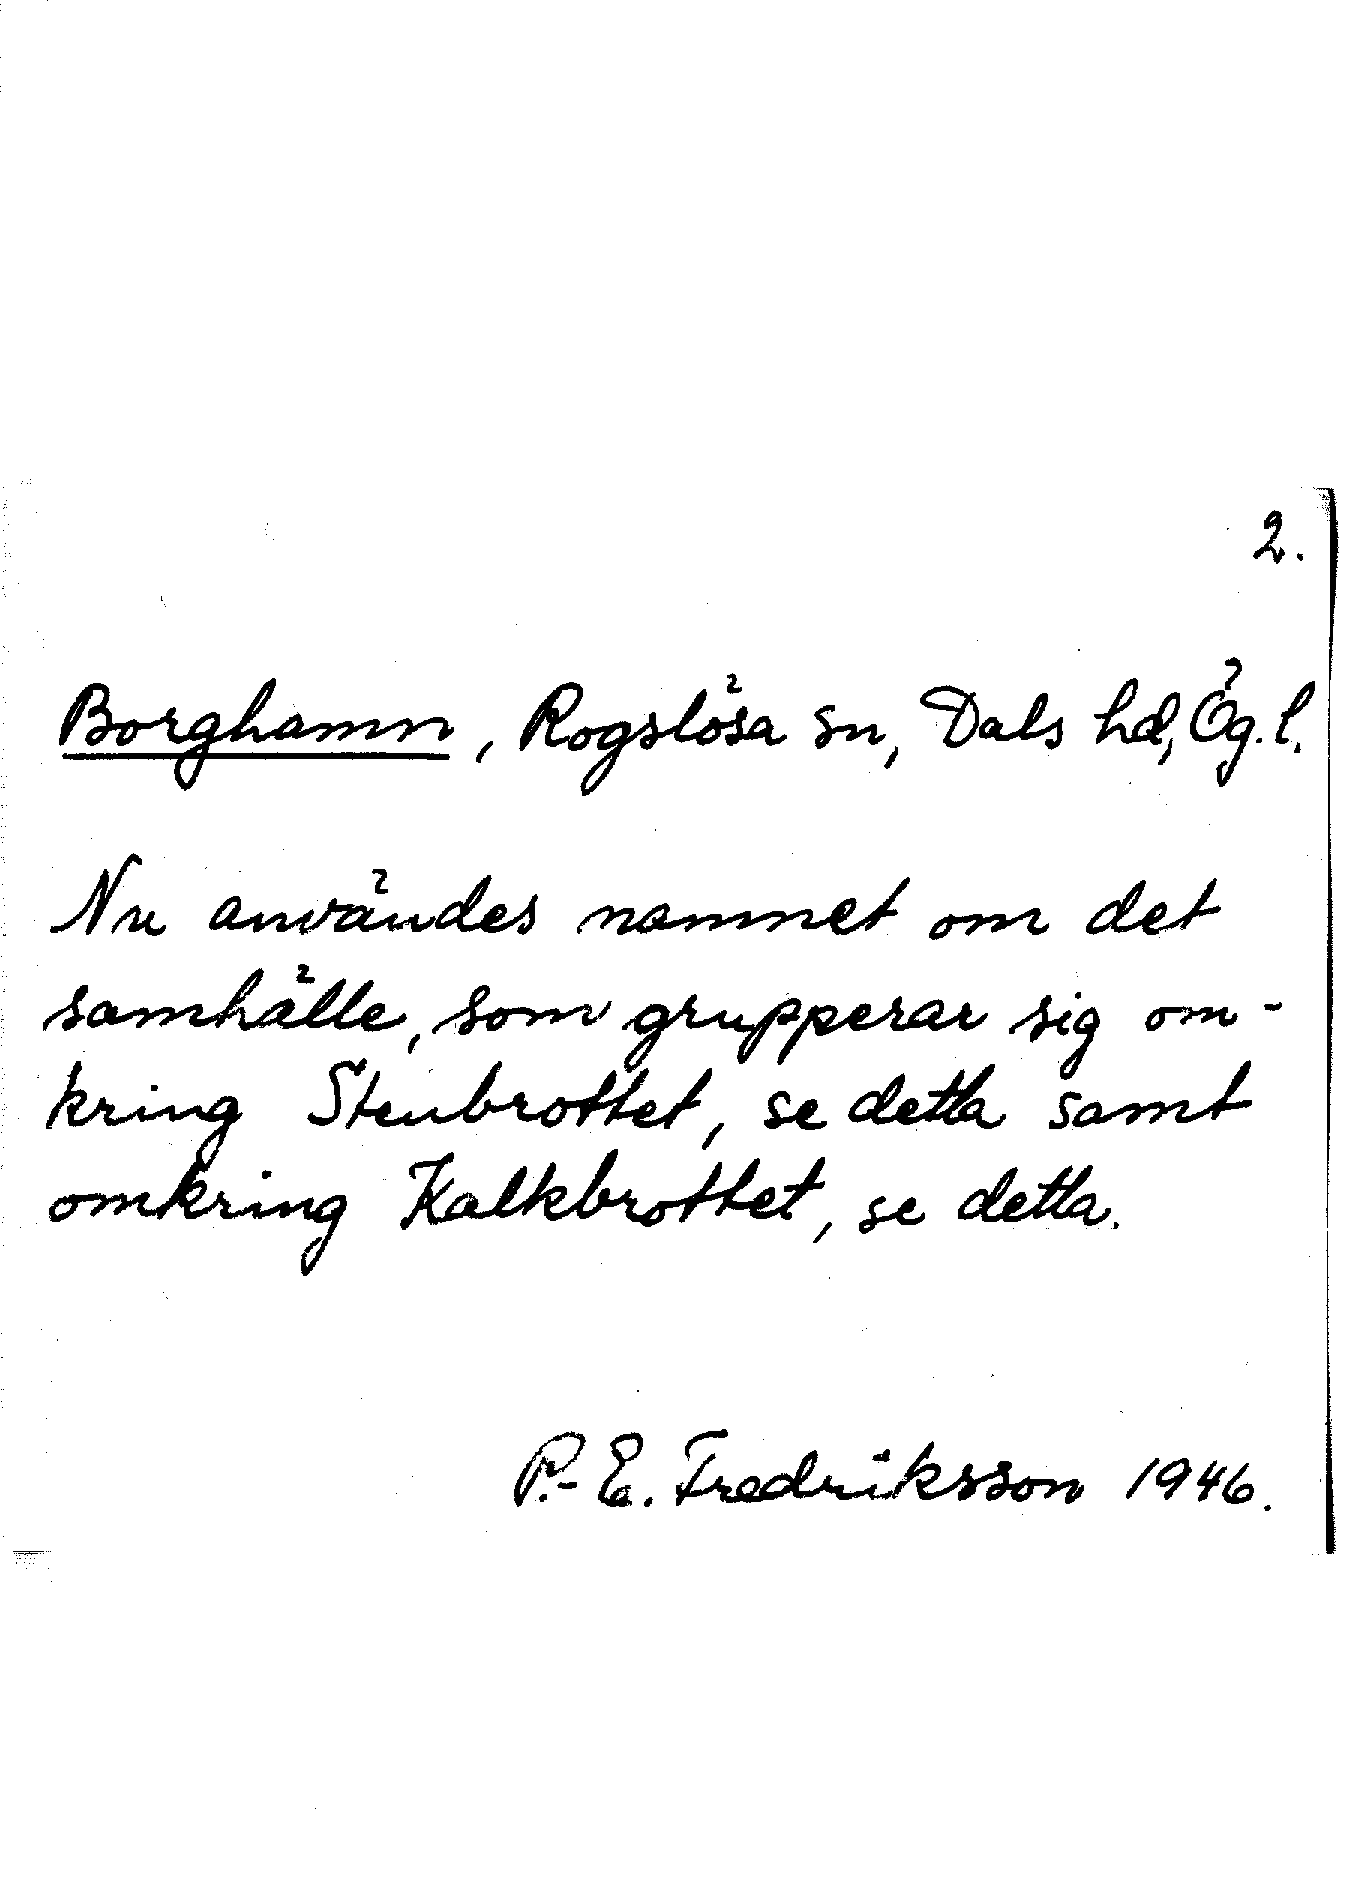 2.
Borghamn, Rogslösa sn, Dals hd, Ög. l.
Nu användes namnet om det
samhälle, som grupperar sig om-
kring Stenbrottet, se detta samt
omkring Kalkbrottet, se detta.
P.-E. Fredriksson 1946.